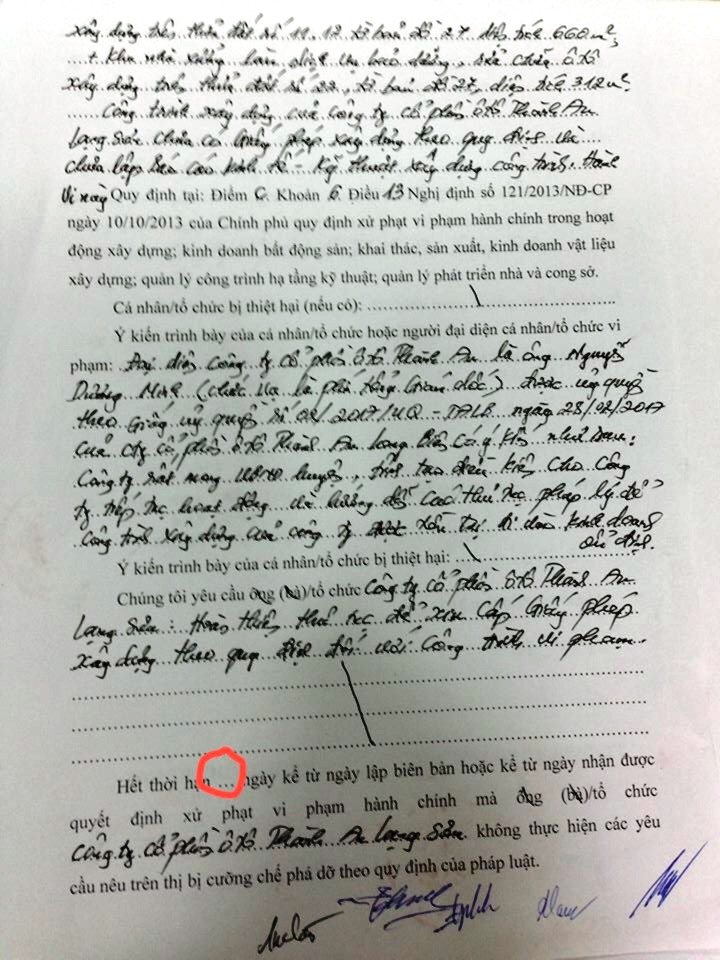 xây dựng trên thửa đất số 11, 12 tờ bản đồ 27 diện tích 660 m²,
+ Khu nhà xưởng làm dịch vụ bảo dưỡng, sửa chữa ô tô
xây dựng trên thửa đất số 22, tờ bản đồ 27, diện tích 312 m².
Công trình xây dựng của Công ty cổ phần ô tô Thành An
Lạng Sơn chưa có Giấy phép xây dựng theo quy định và
chưa lập Báo cáo kinh tế - Kỹ thuật xây dựng công trình. Hành
vi này Quy định tại: Điểm C. Khoản 6. Điều 13 Nghị định số 121/2013/NĐ-CP
ngày 10/10/2013 của Chính phủ quy định xử phạt vi phạm hành chính trong hoạt
động xây dựng; kinh doanh bất động sản; khai thác, sản xuất, kinh doanh vật liệu
xây dựng; quản lý công trình hạ tầng kỹ thuật; quản lý phát triển nhà và cong sở.
Cá nhân/tổ chức bị thiệt hại (nếu có): ........................................
Ý kiến trình bày của cá nhân/tổ chức hoặc người đại diện cá nhân/tổ chức vi
phạm: Đại diện Công ty cổ phần ô tô Thành An là ông Nguyễn
Dương Minh (chức vụ là phó tổng Giám đốc) được ủy quyền
theo Giấy ủy quyền số 02/2017/UQ - ngày 28/02/2017
của cty cổ phần ô tô Thành An Long Biên có ý kiến như sau:
Công ty rất mong UBND huyện, tỉnh tạo điều kiện cho Công
ty tiếp tục hoạt động và hướng dẫn các thủ tục pháp lý để
công trình xây dựng của công ty tồn tại đi vào kinh doanh
ổn định.
Ý kiến trình bày của cá nhân/tổ chức bị thiệt hại:
Chúng tôi yêu cầu ông (bà)/tổ chức Công ty cổ phần ô tô Thành An
Lạng Sơn: Hoàn thiện thủ tục để xin cấp Giấy phép
xây dựng theo quy định đối với Công trình vi phạm.
Hết thời hạn ... ngày kể từ ngày lập biên bản hoặc kể từ ngày nhận được
quyết định xử phạt vi phạm hành chính mà ông (bà)/tổ chức
Công ty cổ phần ô tô Thành An Lạng Sơn không thực hiện các yêu
cầu nêu trên thị bị cưỡng chế phá dỡ theo quy định của pháp luật.